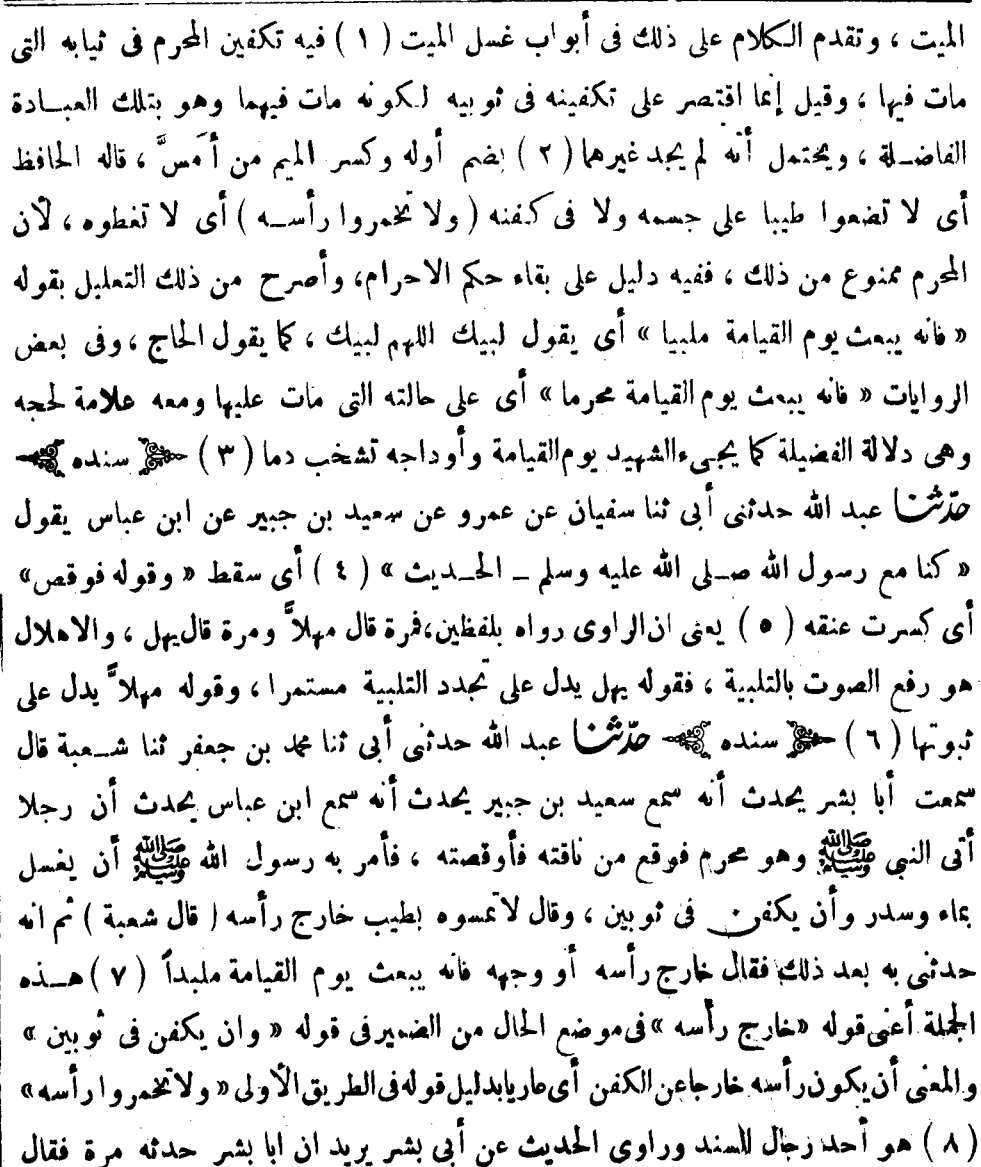 الميت ، وتقدم الكلام على ذلك فى أبواب غسل الميت ( ١ ) فيه تكفين المحرم فى ثيابه التى
مات فيها ، وقيل إنما اقتصر على تكفينه فى ثوبيه لكونه مات فيهما وهو بتلك العبــادة
الفاضـلة ، ويحتمل أنه لم يجد غيرهما ( ٢ ) بضم أوله وكسر الميم من أَمسَّ ، قاله الحافظ
أى لا تضعوا طيبا على جسمه ولا فى كفنه ( ولا تخمروا رأســه ) أى لا تغطوه ، لأن
المحرم ممنوع من ذلك ، ففيه دليل على بقاء حكم الاحرام، وأصرح من ذلك التعليل بقوله
« فانه يبعث يوم القيامة ملبيا » أى يقول لبيك اللهم لبيك ، كما يقول الحاج ، وفى بعض
الروايات « فانه يبعث يوم القيامة محرما » أى على حالته التى مات عليها ومعه علامة لحجه
وهى دلالة الفضيلة كما يجىء الشهيد يوم القيامة وأوداجه تشخب دما ( ٣ ) سنده
حدّثنا عبد الله حدثنى أبى ثنا سفيان عن عمرو عن سعيد بن جبير عن ابن عباس يقول
« كنا مع رسول الله صــلى الله عليه وسلم ــ الحــديث » ( ٤ ) أى سقط « وقوله فوقص»
أى كسرت عنقه ( ٥ ) يعنى ان الراوى رواه بلفظين،فمرة قال مهلاًّ ومرة قال يهل ، والاهلال
هو رفع الصوت بالتلبية ، فقوله يهل يدل على تجدد التلبية مستمرا ، وقوله مهلاًّ يدل على
ثبوتها ( ٦ ) سنده حدّثنا عبد الله حدثنى أبى ثنا محمد بن جعفر ثنا شــعبة قال
سمعت أبا بشر يحدث أنه سمع سعيد بن جبير يحدث أنه سمع ابن عباس يحدث أن رجلا
أتى النبى ﷺ وهو محرم فوقع من ناقته فأوقصته ، فأمر به رسول الله ﷺ أن يغسل
بماء وسدر وأن يكفن فى ثوبين ، وقال لا تمسوه بطيب خارج رأسه ( قال شعبة ) ثم انه
حدثنى به بعد ذلك فقال خارج رأسه أو وجهه فانه يبعث يوم القيامة ملبداً ( ٧ ) هــذه
الجملة أعنى قوله «خارج رأسه »فى موضع الحال من الضمير فى قوله « وان يكفن فى ثوبين »
والمعنى أن يكون رأسه خارجا عن الكفن أى عاريا بدليل قوله فى الطريق الأولى « ولا تخمروا رأسه»
( ٨ ) هو أحد رجال السند وراوى الحديث عن أبى بشر يريد ان ابا بشر حدثه مرة فقال